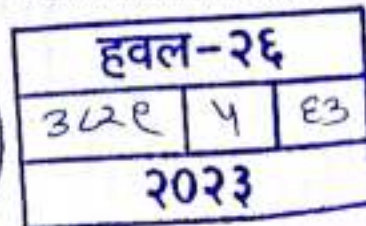 हवल-२६
३८२९ ५ ६३
२०२३